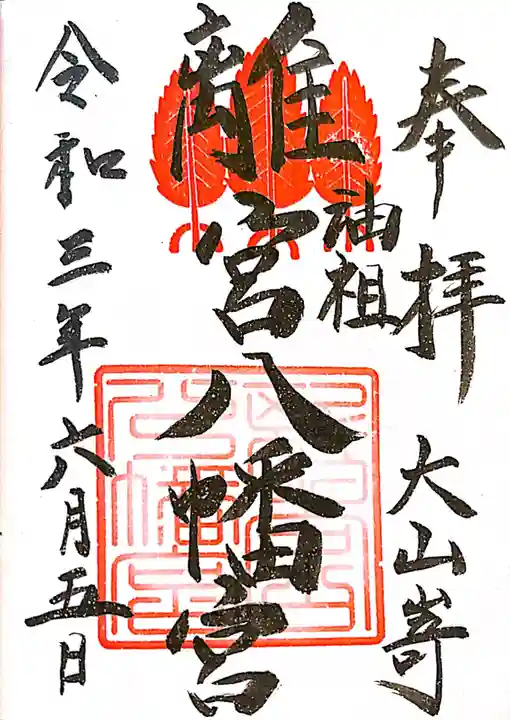 奉拝
大山嵜
油祖
離宮八幡宮
令和三年六月五日